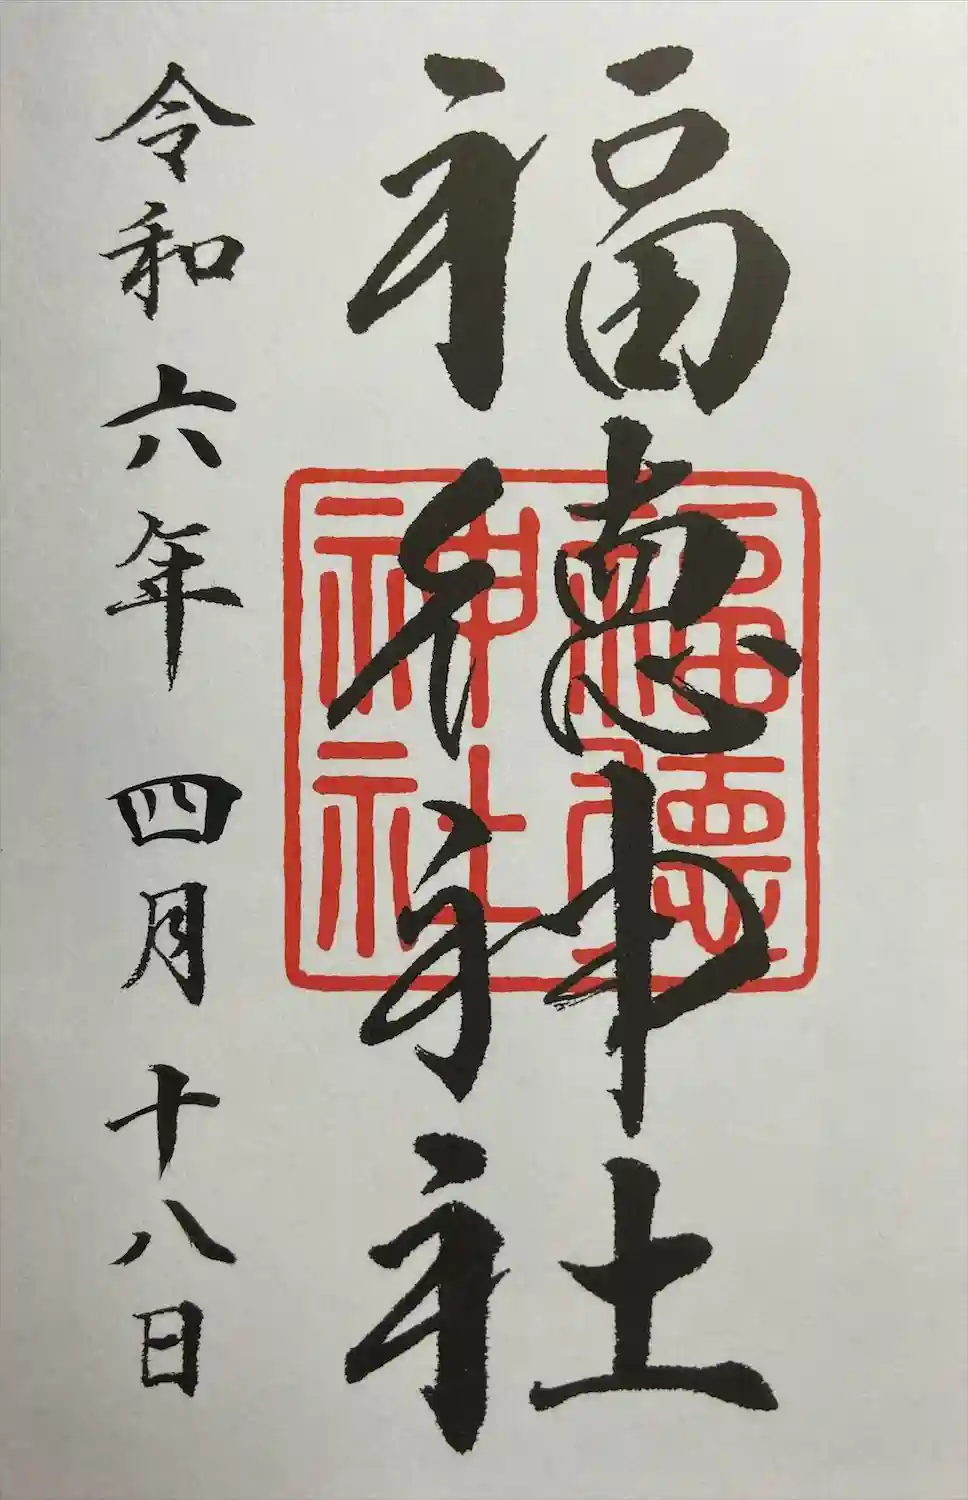 福徳神社
福徳
神社
令和六年 四月 十八日